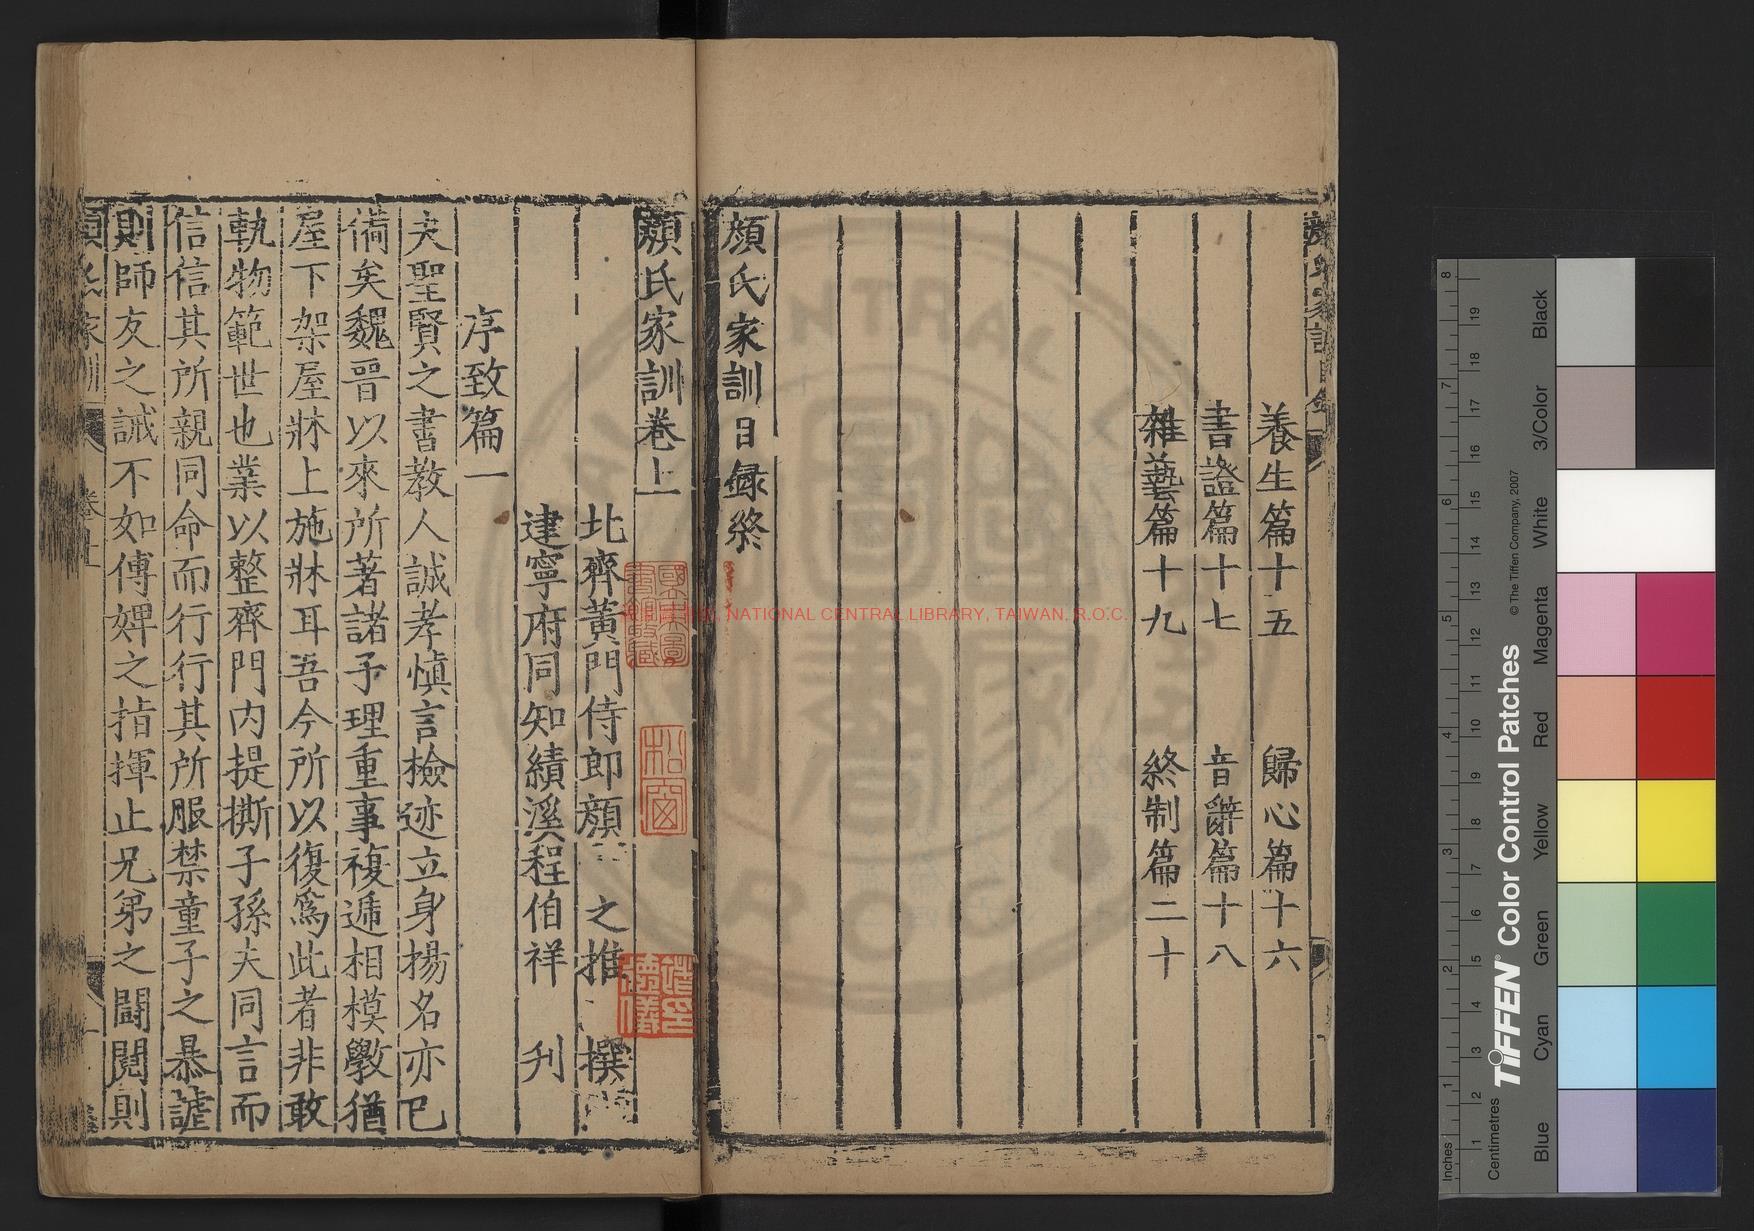 養生篇十五 歸心篇十六
書證篇十七 音辭篇十八
雜藝篇十九 終制篇二十
顏氏家訓目録終
顏氏家訓卷上
北齊黃門侍郎顏之推 撰
建寧府同知績溪程伯祥 刋
序致篇一
夫聖賢之書教人誠孝慎言檢迹立身揚名亦已
備矣魏晉以來所著諸子理重事複遞相模斆猶
屋下架屋牀上施牀耳吾今所以復爲此者非敢
軌物範世也業以整齊門內提撕子孫夫同言而
信信其所親同命而行行其所服禁童子之暴謔
則師友之誡不如傅婢之指揮止兄弟之鬪鬩則
松窗
NATIONAL CENTRAL LIBRARY, TAIWAN, R.O.C.
Inches 1 2 3 4 5 6 7 8
Centimetres 1 2 3 4 5 6 7 8 9 10 11 12 13 14 15 16 17 18 19
TIFFEN® Color Control Patches
© The Tiffen Company, 2007
Blue Cyan Green Yellow Red Magenta White 3/Color Black